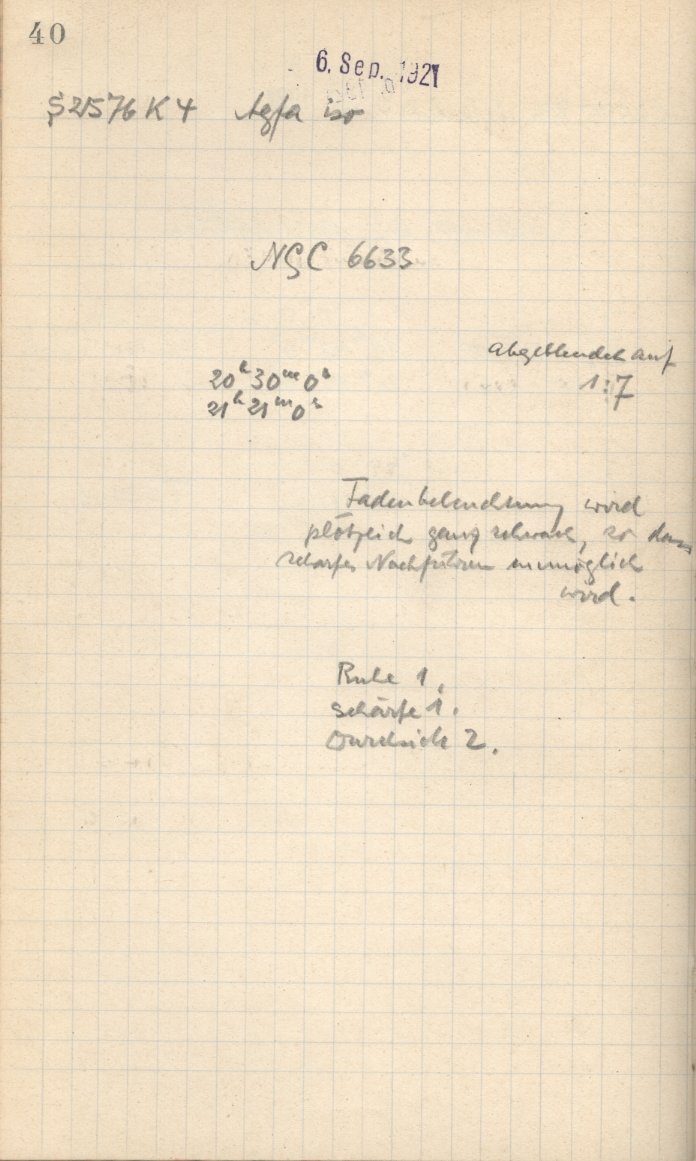 40
6. Sep. 1921
2576 K 4 Agfa iso
NGC 6633
abgeblendet auf
1:7
20h 30m 0s
21h 21m 0s
Fadenbeleuchtung wird
plötzlich ganz schwach, so dass
scharfes Nachführen unmöglich
wird.
Ruhe 1.
Schärfe 1.
Durchsicht 2.